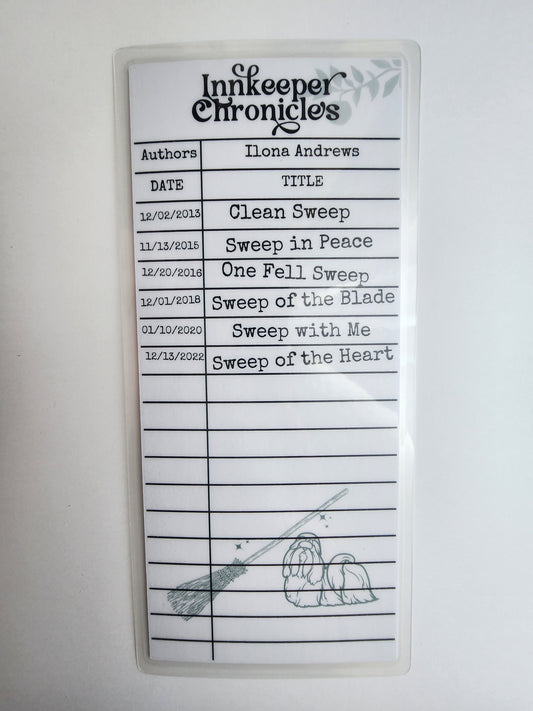 Innkeeper
Chronicles
Authors Ilona Andrews
DATE TITLE
12/02/2013 Clean Sweep
11/13/2015 Sweep in Peace
12/20/2016 One Fell Sweep
12/01/2018 Sweep of the Blade
01/10/2020 Sweep with Me
12/13/2022 Sweep of the Heart